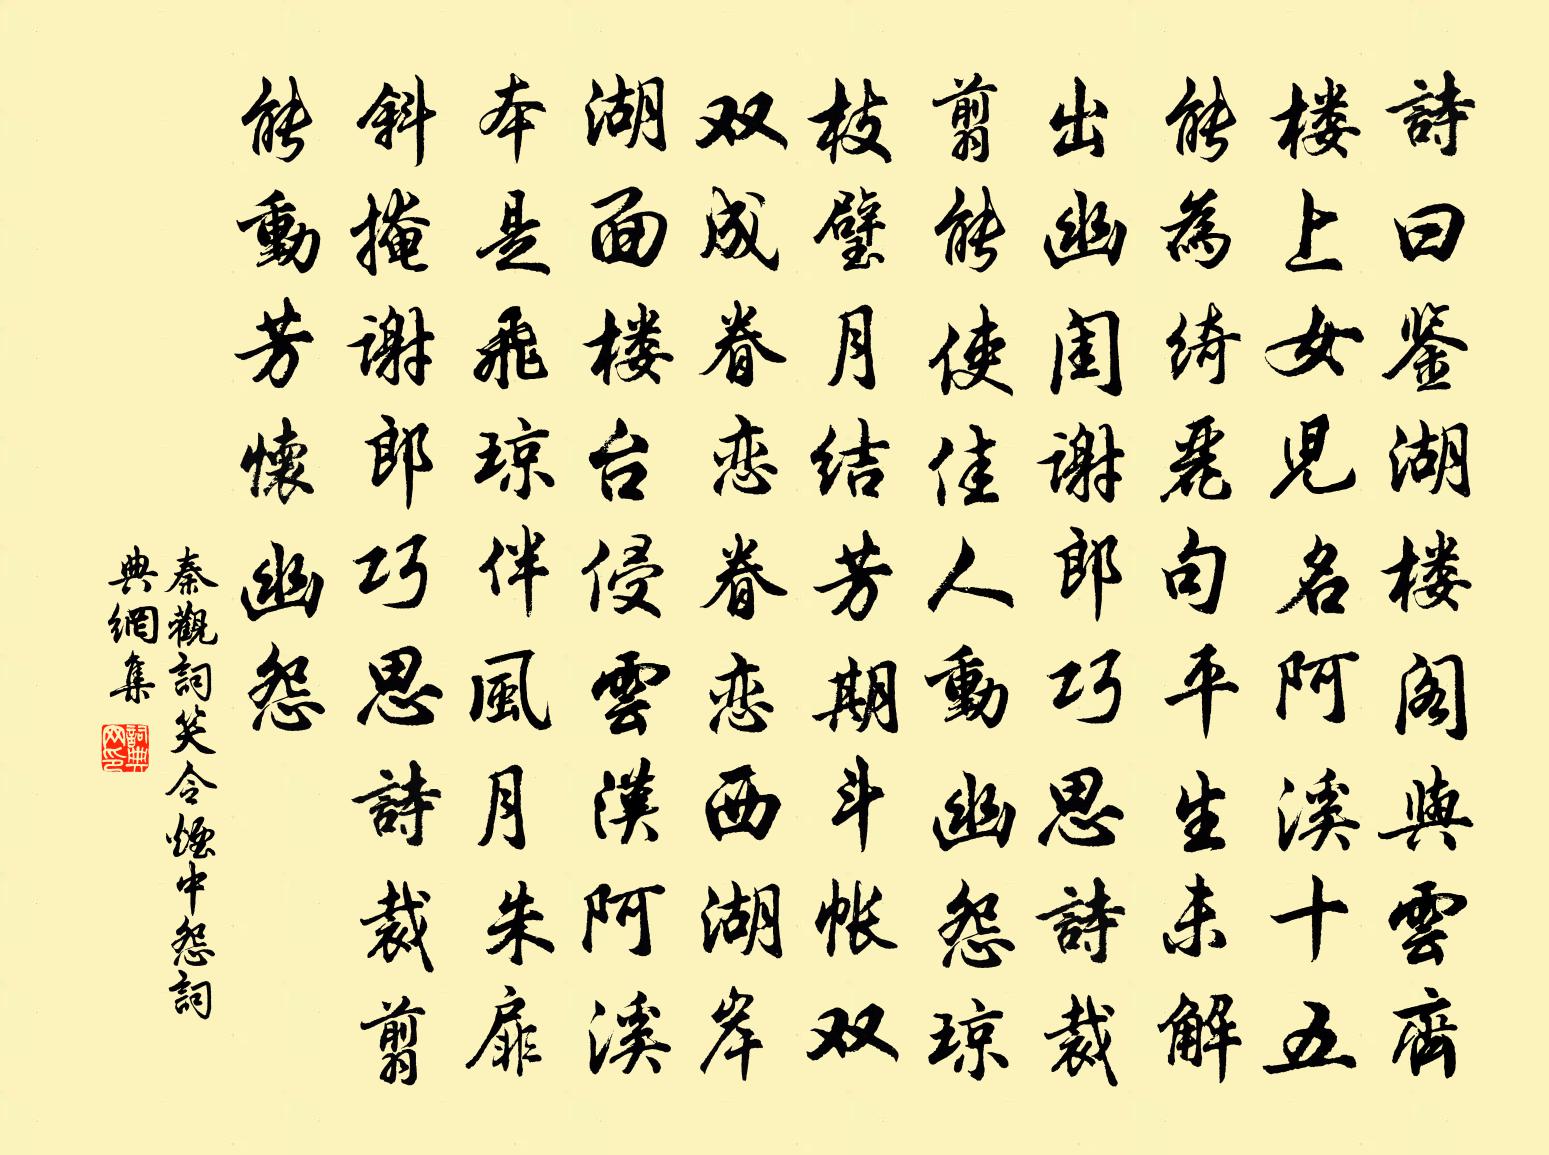 詩曰鉴湖楼阁與雲齊
楼上女児名阿溪十五
能為綺麗句平生未解
出幽闺谢郎巧思詩裁
剪能使佳人動幽怨琼
枝璧月结芳期斗帐双
双成眷恋眷恋西湖岸
湖面楼台侵雲漢阿溪
本是飛琼伴風月朱扉
斜掩谢郎巧思詩裁剪
能動芳懷幽怨
秦觀詞笑令煙中怨詞
典網集
詞典网印